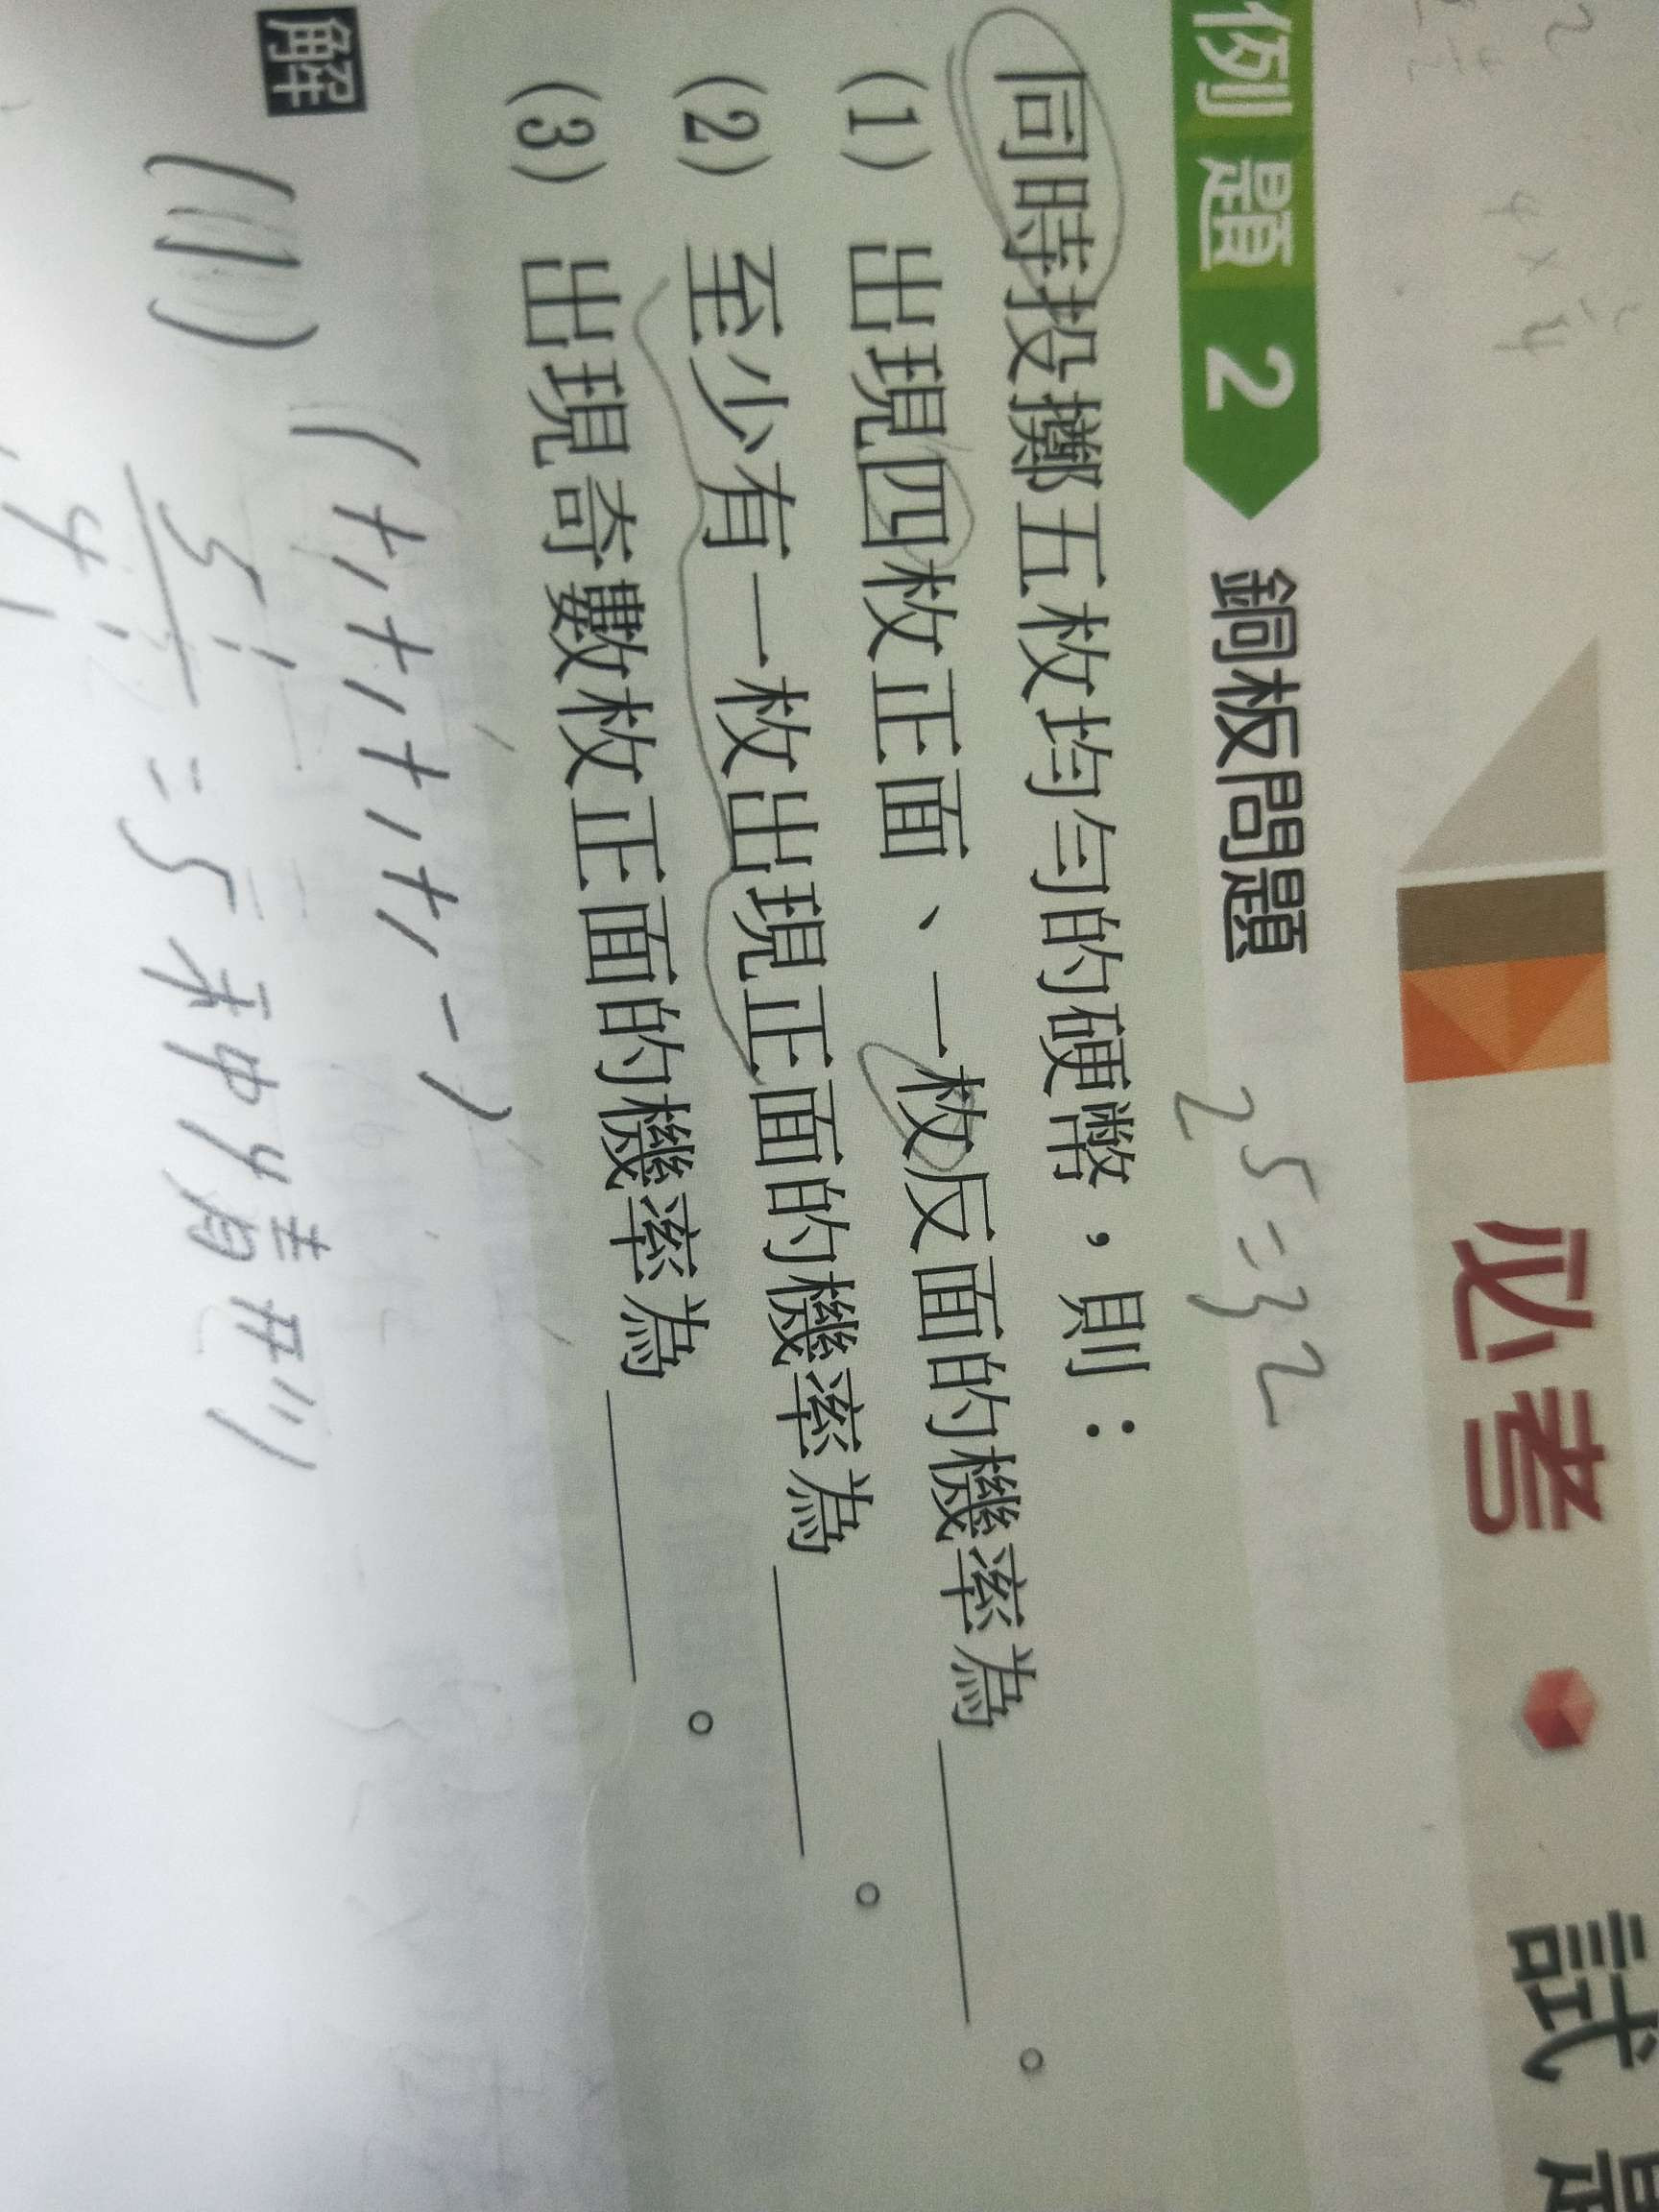 必考 試
例題 2 銅板問題 2^5=32
同時投擲五枚均勻的硬幣，則：
(1) 出現四枚正面、一枚反面的機率為＿＿＿。
(2) 至少有一枚出現正面的機率為＿＿＿。
(3) 出現奇數枚正面的機率為＿＿＿。
解
(1) (+,+,+,+,-)
5!/4! = 5